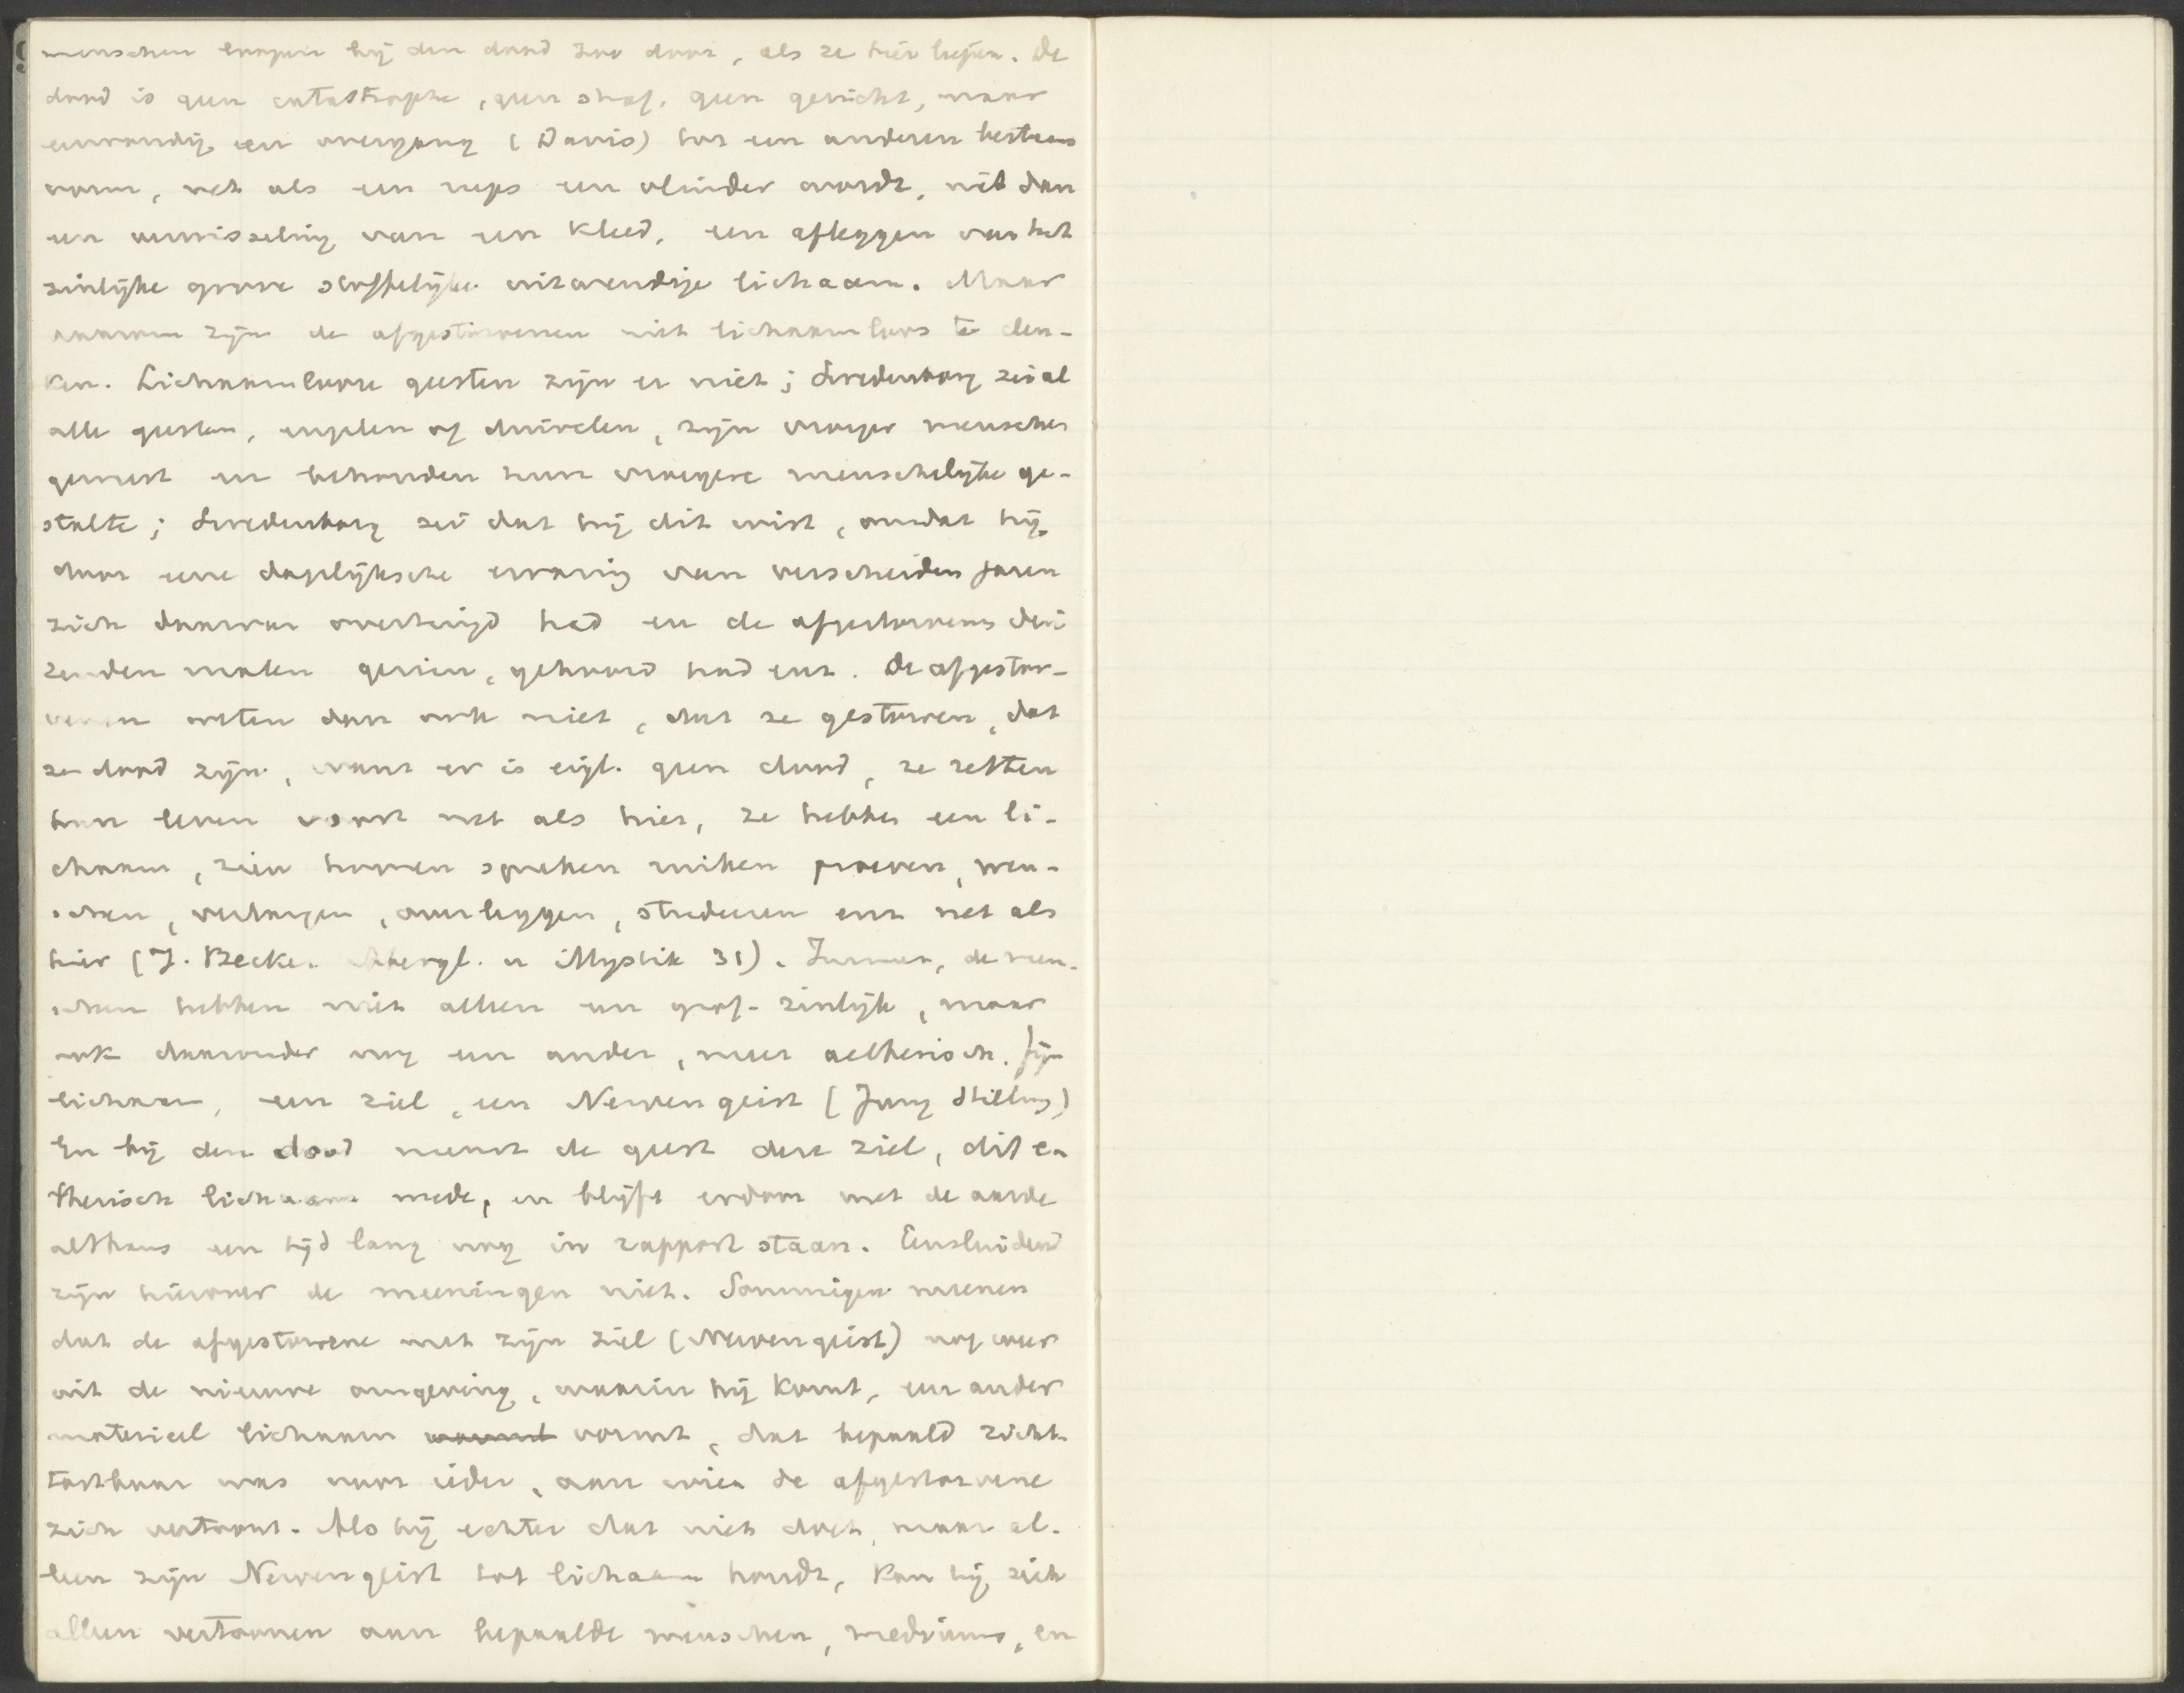 menschen loopen bij den dood zoo door, als ze hier liepen. De
dood is geen catastrophe, geen straf, geen gericht, maar
eenvoudig een overgang (Davis) tot een anderen bestaans
vorm, net als een rups een vlinder wordt, niet dan
een verwisseling van een kleed, een afleggen van het
zinlijke grove stoffelijke uitwendige lichaam. Maar
daarom zijn de afgestorvenen niet lichaamloos te den-
ken. Lichaamlooze geesten zijn er niet; Swedenborg zei al
alle geesten, engelen of duivelen, zijn vroeger menschen
geweest en behouden hun vroegere menschelijke ge-
stalte; Swedenborg zei dat hij dit wist, omdat hij
door eene dagelijksche ervaring van verscheiden jaren
zich daarvan overtuigd had en de afgestorvenen dui
zenden malen gezien, gehoord had enz. De afgestor-
venen weten dan ook niet, dat ze gestorven, dat
ze dood zijn, want er is eigl. geen dood, ze zetten
hun leven voort net als hier, ze hebben een li-
chaam, zien hooren spreken ruiken proeven, wen-
schen, verlangen, overleggen, studeeren enz net als
hier (J. Becker Abergl. u Mystik 31). Immers, de men-
schen hebben niet alleen een grof-zinlijk, maar
ook daaronder nog een ander, meer aetherisch. fijn
lichaam, een ziel, een Nervengeist (Jung Stilling)
En bij den dood neemt de geest deze ziel, dit e-
therisch lichaam mede, en blijft erdoor met de aarde
althans een tijd lang nog in rapport staan. Eensluidend
zijn hierover de meeningen niet. Sommigen meenen
dat de afgestorvene met zijn ziel (Nervengeist) nog weer
uit de nieuwe omgeving, waarin hij komt, een ander
materieel lichaam vormt, dat bepaald zicht-
tastbaar was voor ieder, aan wien de afgestorvene
zich vertoont. Als hij echter dat niet doet, maar al-
leen zijn Nervengeist tot lichaam houdt, kan hij zich
alleen vertoonen aan bepaalde menschen, mediums, en